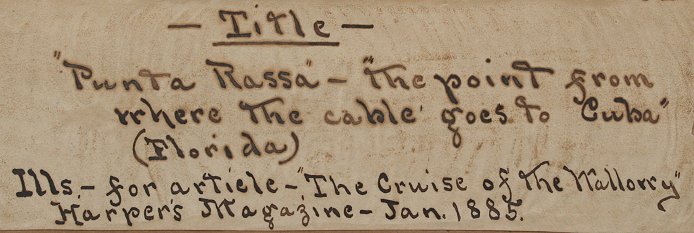 — Title —
"Punta Rassa" — "the point from
where the cable goes to Cuba"
(Florida)
Ills — for article — "The Cruise of the Wallowy"
Harper's Magazine — Jan. 1885.